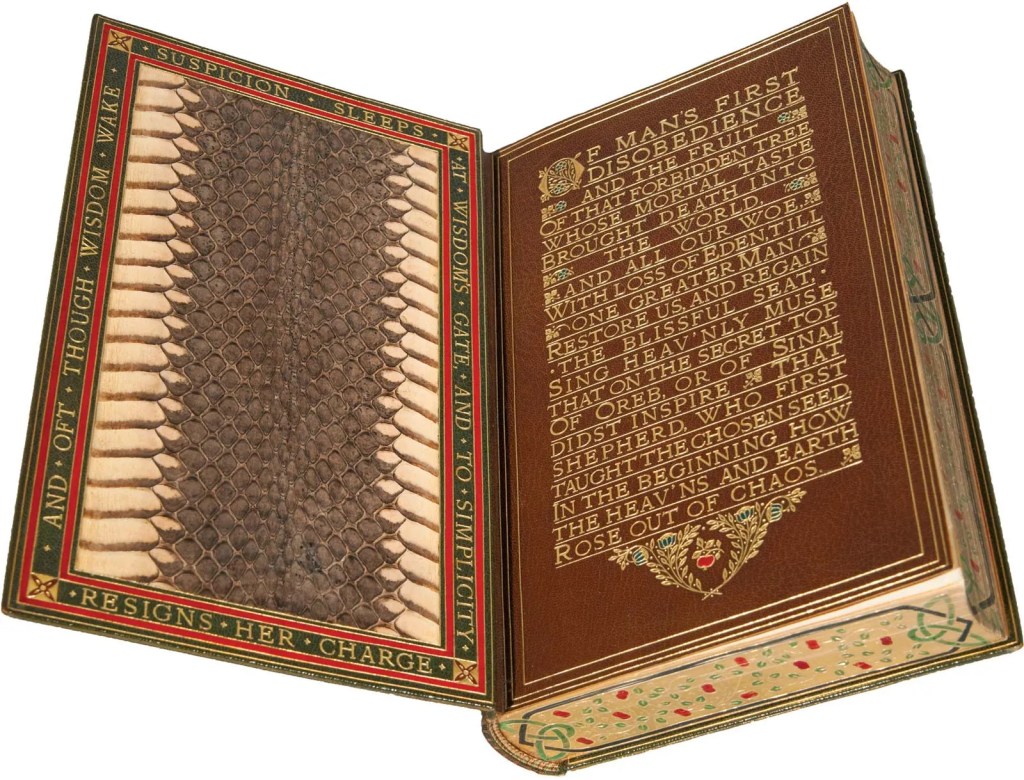 AND · OFT · THOUGH · WISDOM · WAKE
· SUSPICION · SLEEPS ·
AT · WISDOMS · GATE, · AND · TO · SIMPLICITY ·
· RESIGNS · HER · CHARGE ·
OF MAN'S FIRST
DISOBEDIENCE
AND THE FRUIT
OF THAT FORBIDDEN TREE
WHOSE MORTAL TASTE
BROUGHT DEATH INTO
THE WORLD,
AND ALL OUR WOE,
WITH LOSS OF EDEN, TILL
ONE GREATER MAN
RESTORE US, AND REGAIN
THE BLISSFUL SEAT.
SING HEAV'NLY MUSE
THAT ON THE SECRET TOP
OF OREB, OR OF SINAI
DIDST INSPIRE THAT
SHEPHERD, WHO FIRST
TAUGHT THE CHOSEN SEED,
IN THE BEGINNING HOW
THE HEAV'NS AND EARTH
ROSE OUT OF CHAOS.